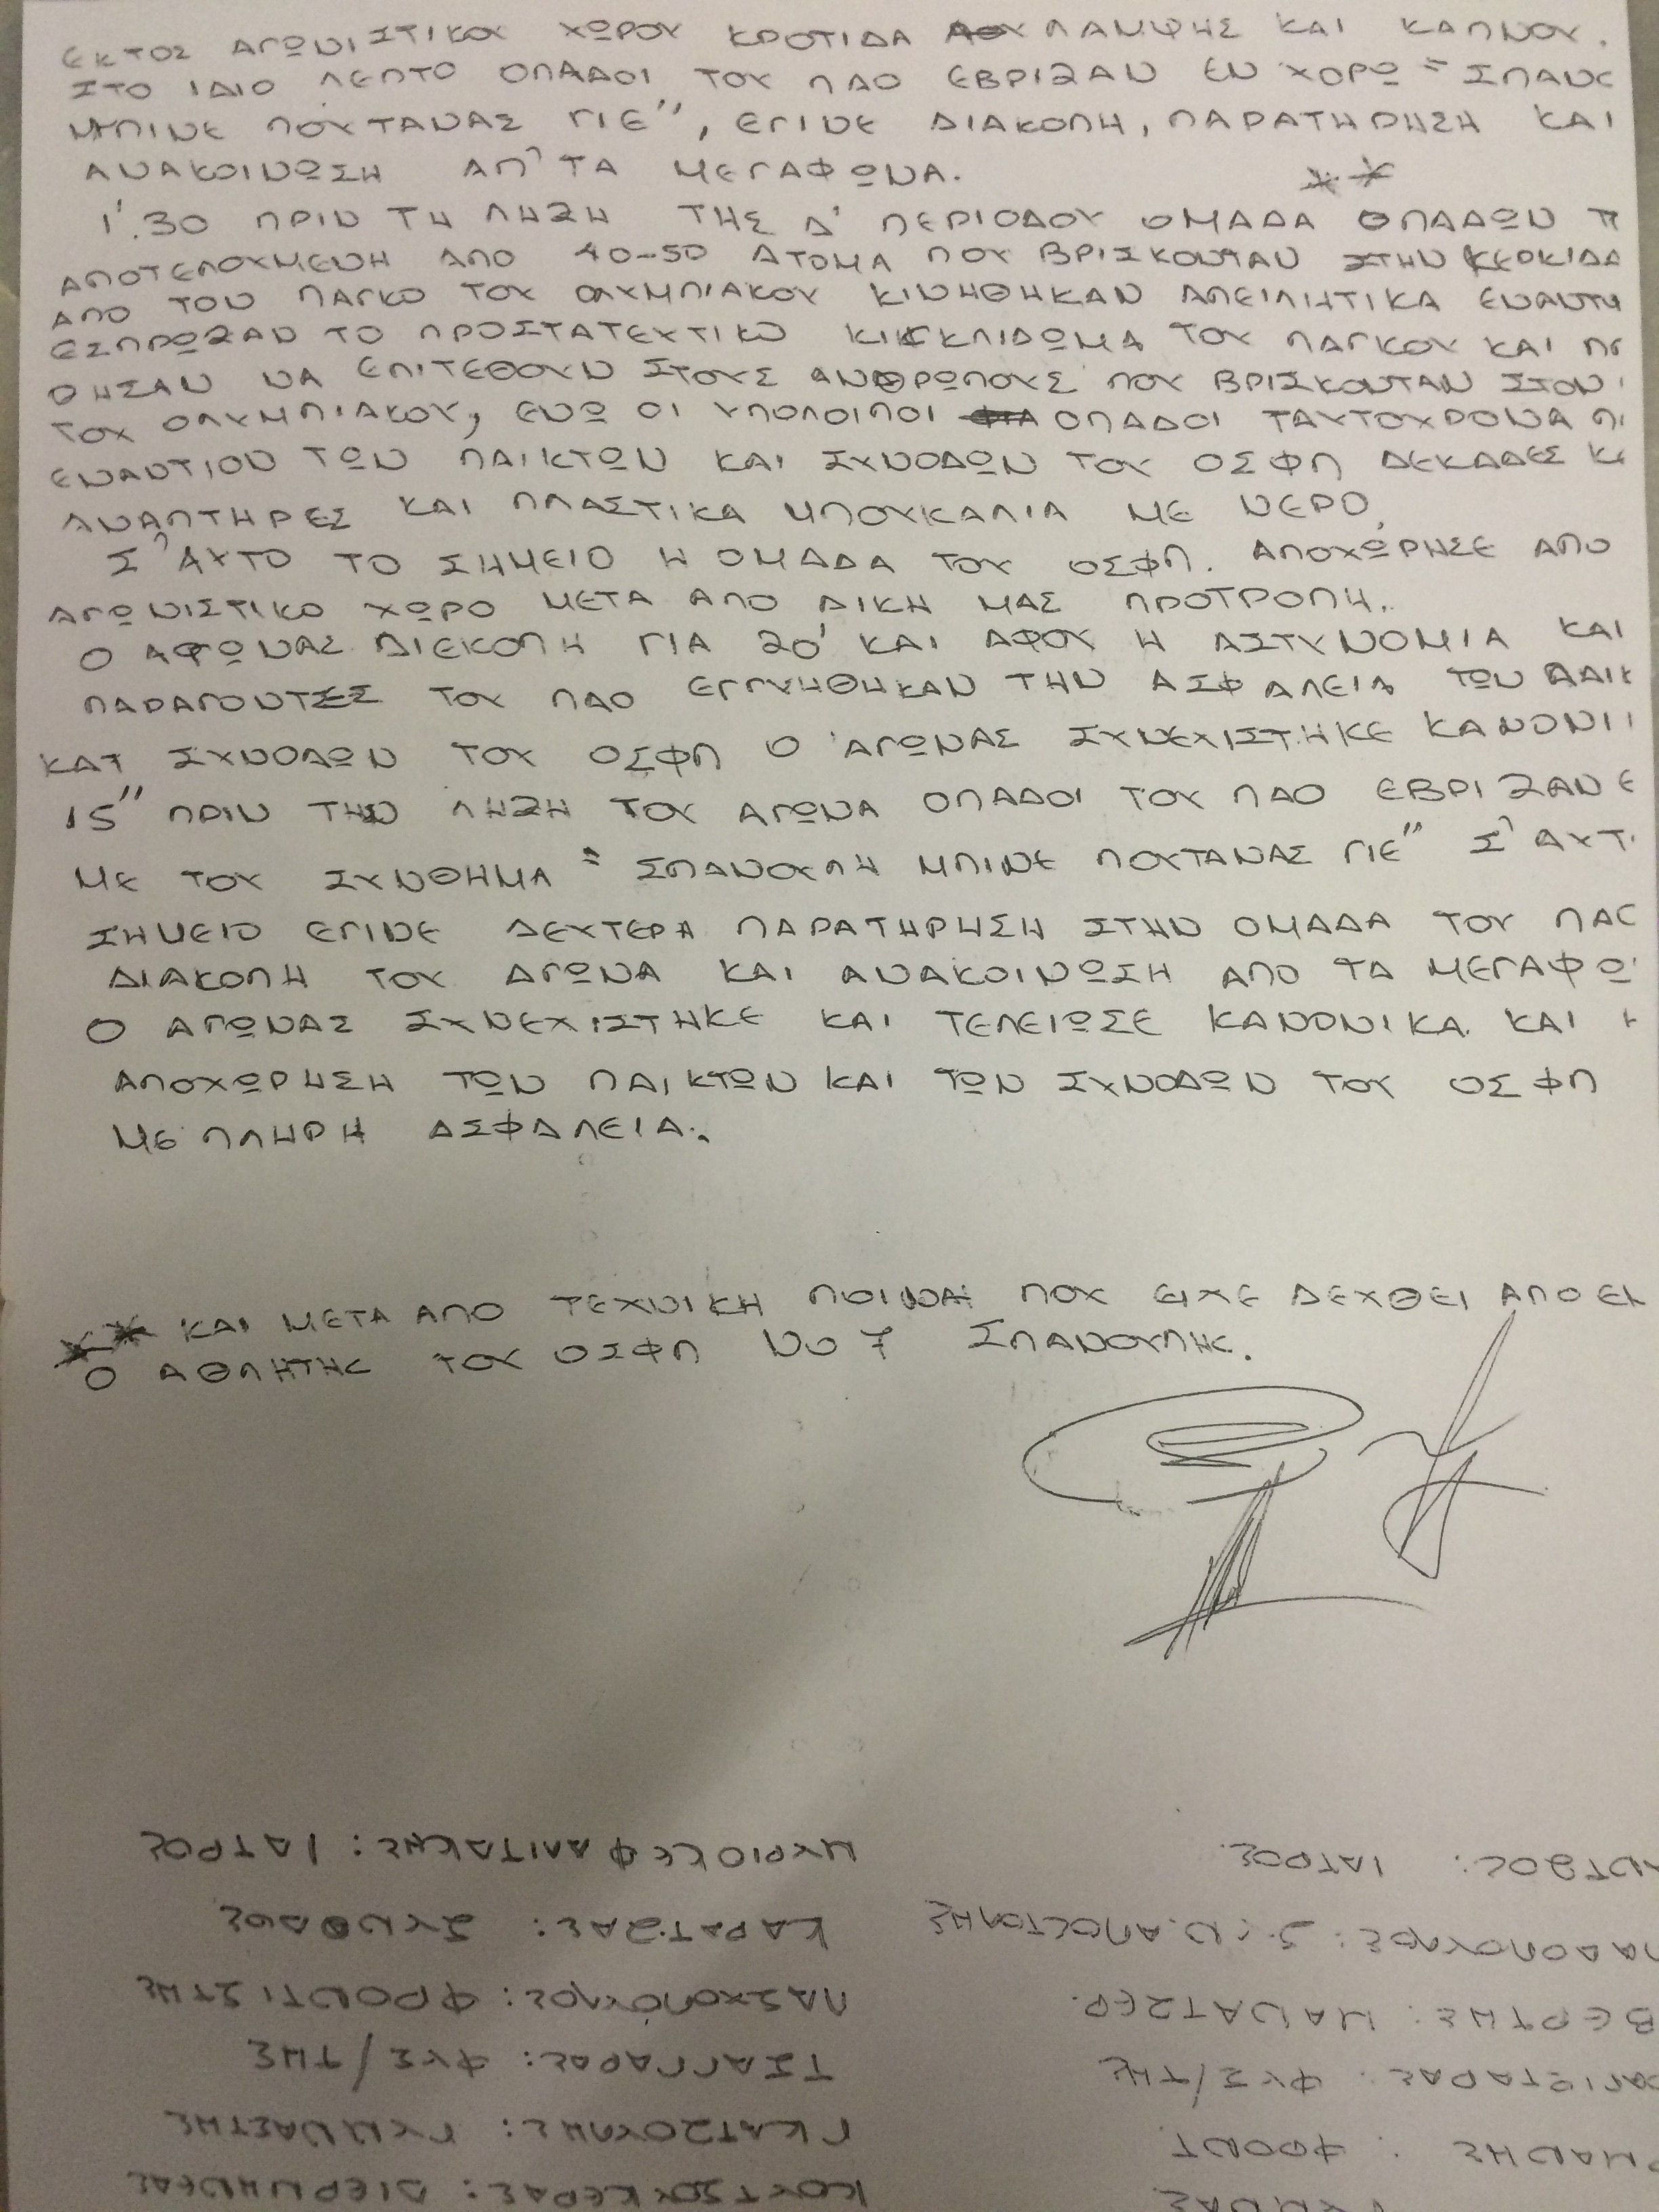 ΕΚΤΟΣ ΑΓΩΝΙΣΤΙΚΟΥ ΧΩΡΟΥ ΚΡΟΤΙΔΑ ΛΑΜΨΗΣ ΚΑΙ ΚΑΠΝΟΥ.
ΣΤΟ ΙΔΙΟ ΛΕΠΤΟ ΟΠΑΔΟΙ ΤΟΥ ΠΑΟ ΕΒΡΙΖΑΝ ΕΝ ΧΟΡΩ "ΣΠΑΝΟ
ΜΠΙΝΕ ΠΟΥΤΑΝΑΣ ΓΙΕ", ΕΓΙΝΕ ΔΙΑΚΟΠΗ, ΠΑΡΑΤΗΡΗΣΗ ΚΑΙ
ΑΝΑΚΟΙΝΩΣΗ ΑΠ' ΤΑ ΜΕΓΑΦΩΝΑ. **
1'.30 ΠΡΙΝ ΤΗ ΛΗΞΗ ΤΗΣ Δ' ΠΕΡΙΟΔΟΥ ΟΜΑΔΑ ΟΠΑΔΩΝ Π
ΑΠΟΤΕΛΟΥΜΕΝΗ ΑΠΟ 40-50 ΑΤΟΜΑ ΠΟΥ ΒΡΙΣΚΟΝΤΑΝ ΣΤΗΝ ΚΕΡΚΙΔΑ
ΑΠΟ ΤΟΝ ΠΑΓΚΟ ΤΟΥ ΟΛΥΜΠΙΑΚΟΥ ΚΙΝΗΘΗΚΑΝ ΑΠΕΙΛΗΤΙΚΑ ΕΝΑΝΤΙ
ΕΣΠΡΩΞΑΝ ΤΟ ΠΡΟΣΤΑΤΕΥΤΙΚΟ ΚΙΓΚΛΙΔΩΜΑ ΤΟΥ ΠΑΓΚΟΥ ΚΑΙ ΠΡ
ΘΗΣΑΝ ΝΑ ΕΠΙΤΕΘΟΥΝ ΣΤΟΥΣ ΑΝΘΡΩΠΟΥΣ ΠΟΥ ΒΡΙΣΚΟΝΤΑΝ ΣΤΟΝ
ΤΟΥ ΟΛΥΜΠΙΑΚΟΥ, ΕΝΩ ΟΙ ΥΠΟΛΟΙΠΟΙ ΟΠΑΔΟΙ ΤΑΥΤΟΧΡΟΝΑ ΠΙ
ΕΝΑΝΤΙΟΝ ΤΩΝ ΠΑΙΚΤΩΝ ΚΑΙ ΣΥΝΟΔΩΝ ΤΟΥ ΟΣΦΠ ΔΕΚΑΔΕΣ Κ
ΑΝΑΠΤΗΡΕΣ ΚΑΙ ΠΛΑΣΤΙΚΑ ΜΠΟΥΚΑΛΙΑ ΜΕ ΝΕΡΟ.
Σ' ΑΥΤΟ ΤΟ ΣΗΜΕΙΟ Η ΟΜΑΔΑ ΤΟΥ ΟΣΦΠ. ΑΠΟΧΩΡΗΣΕ ΑΠΟ
ΑΓΩΝΙΣΤΙΚΟ ΧΩΡΟ ΜΕΤΑ ΑΠΟ ΔΙΚΗ ΜΑΣ ΠΡΟΤΡΟΠΗ.
Ο ΑΓΩΝΑΣ ΔΙΕΚΟΠΗ ΓΙΑ 20' ΚΑΙ ΑΦΟΥ Η ΑΣΤΥΝΟΜΙΑ ΚΑΙ
ΠΑΡΑΓΟΝΤΕΣ ΤΟΥ ΠΑΟ ΕΓΓΥΗΘΗΚΑΝ ΤΗΝ ΑΣΦΑΛΕΙΑ ΤΩΝ ΠΑΙΚ
ΚΑΙ ΣΥΝΟΔΩΝ ΤΟΥ ΟΣΦΠ Ο ΑΓΩΝΑΣ ΣΥΝΕΧΙΣΤΗΚΕ ΚΑΝΟΝΙ
15" ΠΡΙΝ ΤΗΝ ΛΗΞΗ ΤΟΥ ΑΓΩΝΑ ΟΠΑΔΟΙ ΤΟΥ ΠΑΟ ΕΒΡΙΖΑΝ Ε
ΜΕ ΤΟΥ ΣΥΝΘΗΜΑ "ΣΠΑΝΟΥΛΗ ΜΠΙΝΕ ΠΟΥΤΑΝΑΣ ΓΙΕ" Σ' ΑΥΤ
ΣΗΜΕΙΟ ΕΓΙΝΕ ΔΕΥΤΕΡΗ ΠΑΡΑΤΗΡΗΣΗ ΣΤΗΝ ΟΜΑΔΑ ΤΟΥ ΠΑΟ
ΔΙΑΚΟΠΗ ΤΟΥ ΑΓΩΝΑ ΚΑΙ ΑΝΑΚΟΙΝΩΣΗ ΑΠΟ ΤΑ ΜΕΓΑΦΩ
Ο ΑΓΩΝΑΣ ΣΥΝΕΧΙΣΤΗΚΕ ΚΑΙ ΤΕΛΕΙΩΣΕ ΚΑΝΟΝΙΚΑ ΚΑΙ Η
ΑΠΟΧΩΡΗΣΗ ΤΩΝ ΠΑΙΚΤΩΝ ΚΑΙ ΤΩΝ ΣΥΝΟΔΩΝ ΤΟΥ ΟΣΦΠ
ΜΕ ΠΛΗΡΗ ΑΣΦΑΛΕΙΑ.
** ΚΑΙ ΜΕΤΑ ΑΠΟ ΤΕΧΝΙΚΗ ΠΟΙΝΗ ΠΟΥ ΕΙΧΕ ΔΕΧΘΕΙ ΑΠΟ ΕΜ
Ο ΑΘΛΗΤΗΣ ΤΟΥ ΟΣΦΠ Νο 7 ΣΠΑΝΟΥΛΗΣ.
ΜΥΡΙΟΚΕΦΑΛΙΤΑΚΗΣ: ΙΑΤΡΟΣ
ΙΑΤΡΟΣ.
ΚΑΡΑΤΖΑΣ: ΣΥΝΟΔΟΣ
ΑΔΟΠΟΥΛΟΣ: ΣΥΝ. ΑΠΟΣΤΟΛΗΣ
ΠΑΣΧΟΠΟΥΛΟΣ: ΦΡΟΝΤΙΣΤΗΣ
ΒΕΡΤΗΣ: ΜΑΝΑΤΖΕΡ.
ΤΣΑΓΓΑΡΑΣ: ΦΥΣ/ΤΗΣ
ΦΥΣ/ΤΗΣ
ΓΚΑΤΖΟΥΛΗΣ: ΓΥΜΝΑΣΤΗΣ
ΜΑΝΗΣ : ΦΡΟΝΤ
ΚΟΥΤΣΟΥΚΕΡΑΣ: ΔΙΕΡΜΗΝΕΑΣ